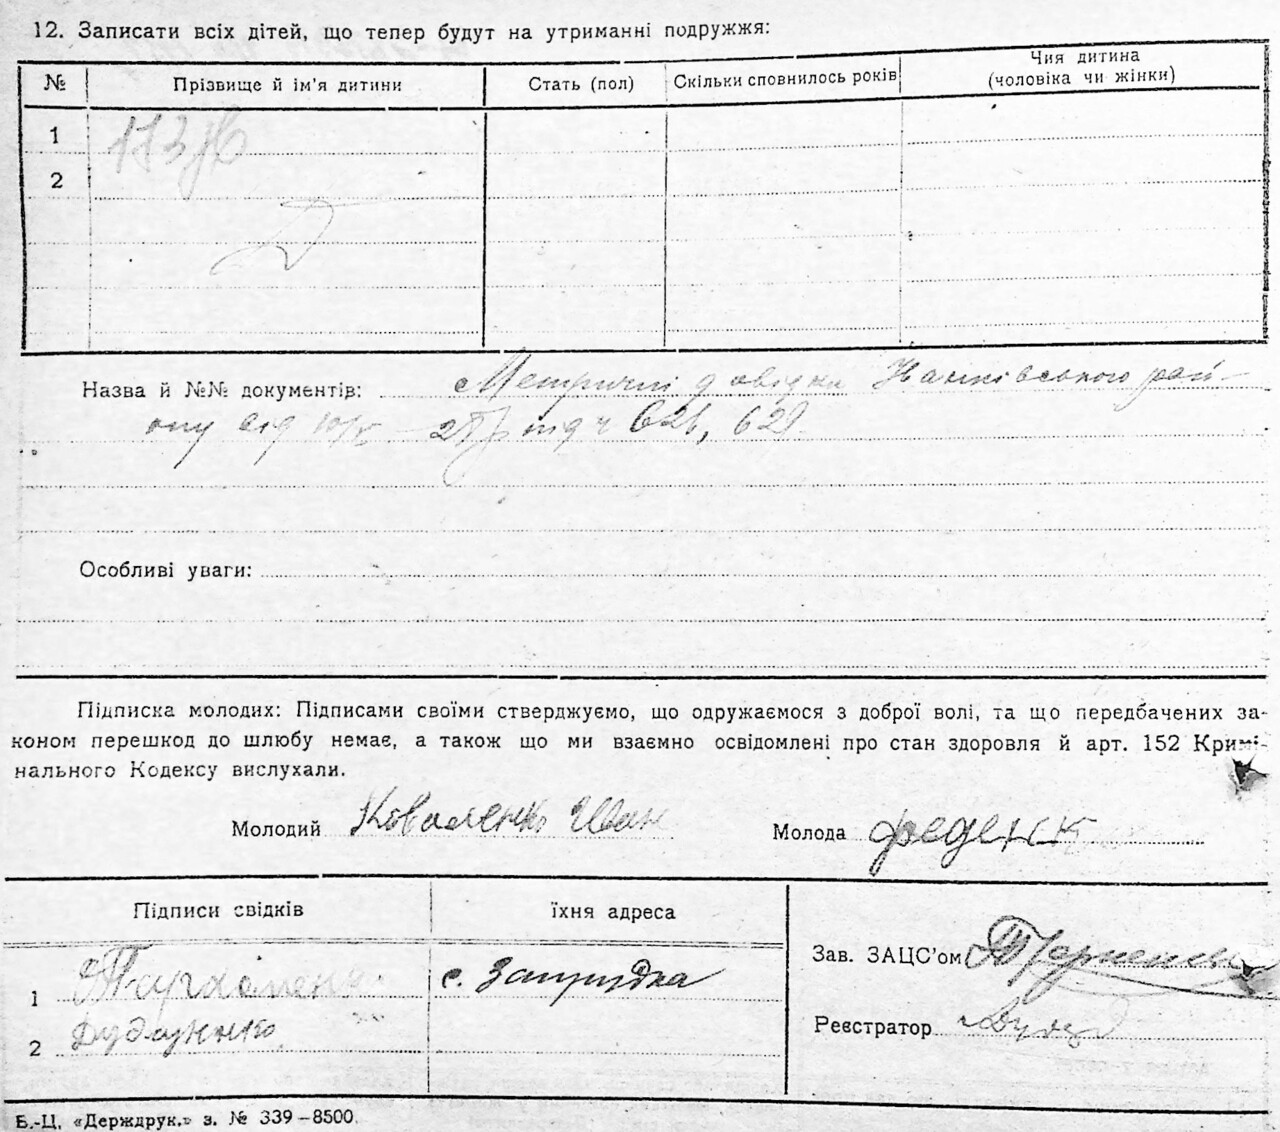 12. Записати всіх дітей, що тепер будут на утриманні подружжя:
№ Прізвище й ім'я дитини Стать (пол) Скільки сповнилось років Чия дитина
(чоловіка чи жінки)
1 113
2
Назва й №№ документів: Метричні довідки рай-
ону від 628, 629
Особливі уваги:
Підписка молодих: Підписами своїми стверджуємо, що одружаємося з доброї волі, та що передбачених за-
коном перешкод до шлюбу немає, а також що ми взаємно освідомлені про стан здоровля й арт. 152 Кримі-
нального Кодексу вислухали.
Молодий Коваленко Иван Молода феденк
Підписи свідків їхня адреса
Зав. ЗАЦС'ом
1 с. Запрудка
Реєстратор
2
Б.-Ц. «Держдрук.» з. № 339–8500